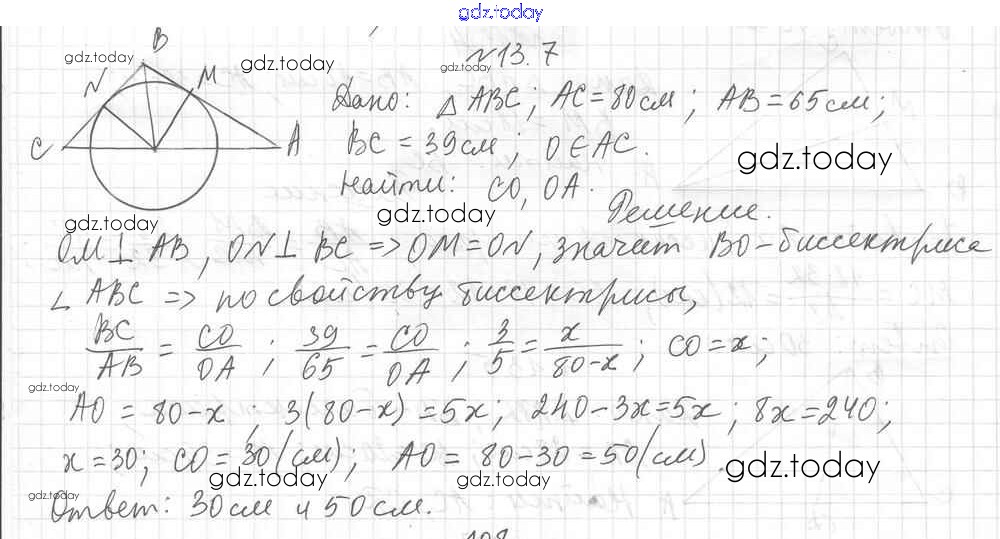 gdz.today
№13.7
gdz.today gdz.today gdz.today
B
N M
C A
Дано: △ ABC; AC = 80 см; AB = 65 см;
BC = 39 см; O ∈ AC.
gdz.today
Найти: CO, OA.
gdz.today gdz.today
Решение.
OM ⊥ AB, ON ⊥ BC => OM = ON, значит BO - биссектриса
∠ ABC => по свойству биссектрисы,
BC/AB = CO/OA; 39/65 = CO/OA; 3/5 = x/80-x; CO = x;
gdz.today
AO = 80 - x; 3(80 - x) = 5x; 240 - 3x = 5x; 8x = 240;
x = 30; CO = 30 (см); AO = 80 - 30 = 50 (см).
gdz.today gdz.today gdz.today
gdz.today
Ответ: 30 см и 50 см.